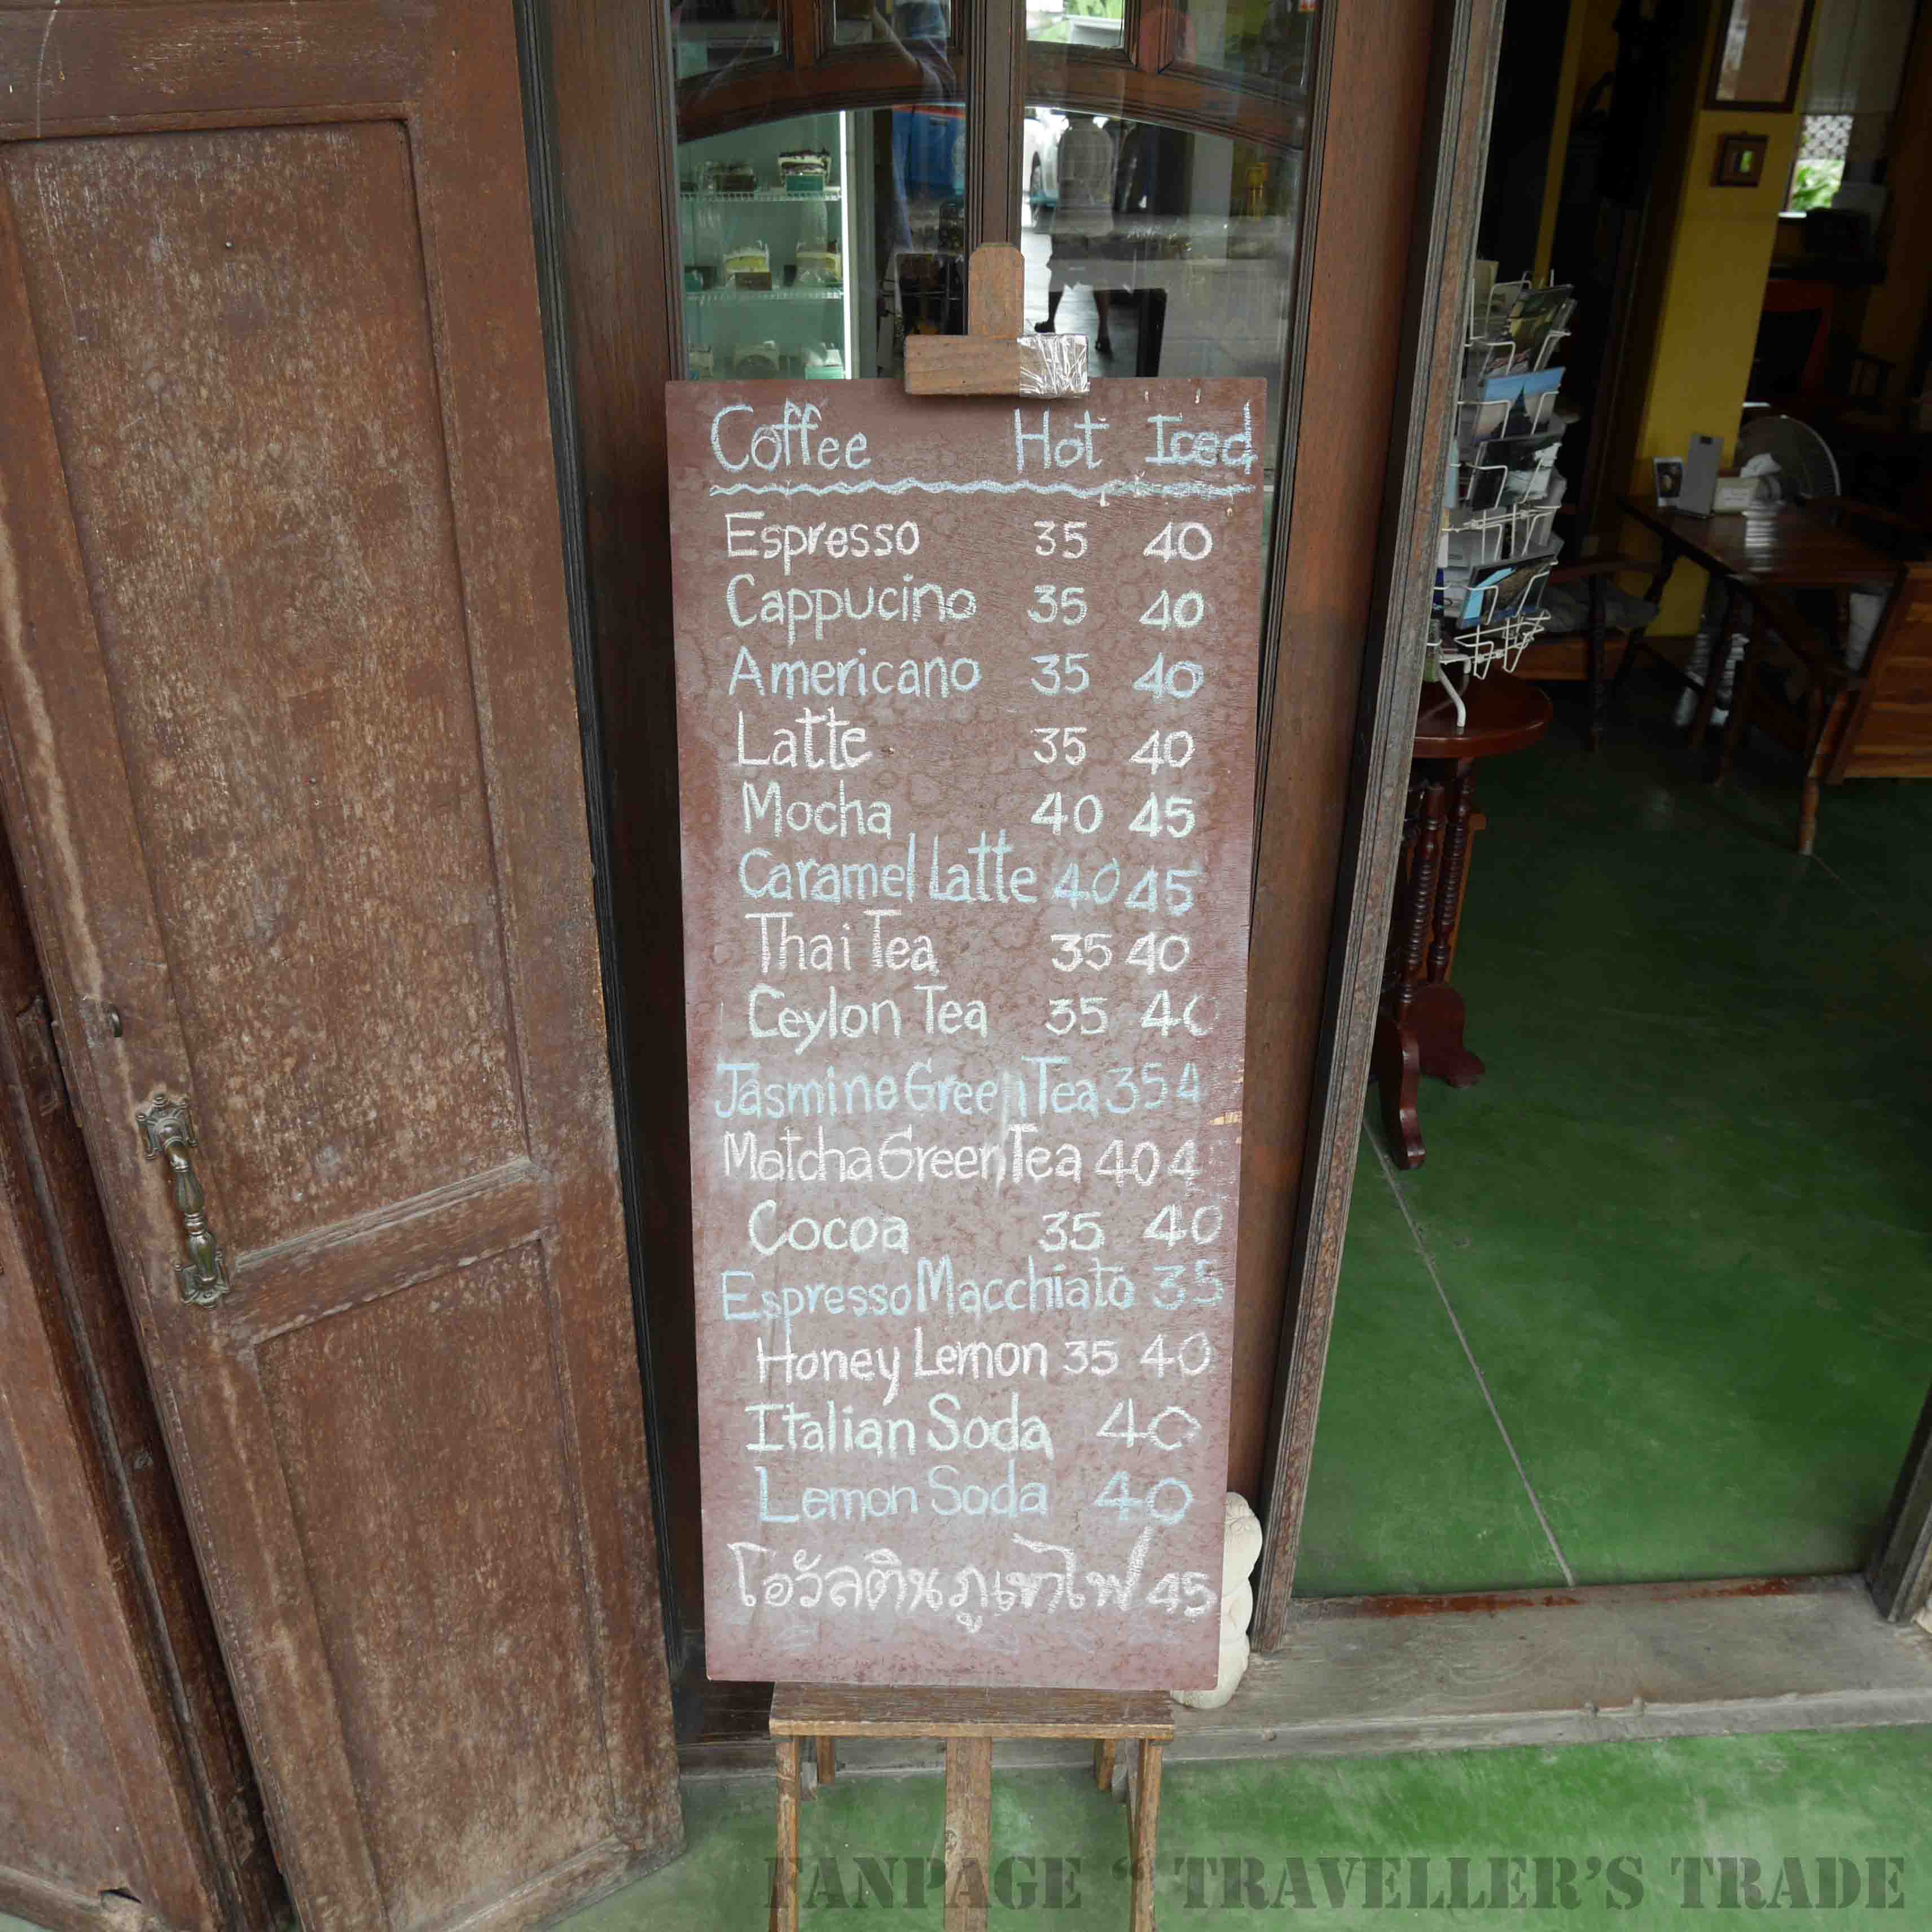 Coffee Hot Iced
Espresso 35 40
Cappucino 35 40
Americano 35 40
Latte 35 40
Mocha 40 45
Caramel Latte 40 45
Thai Tea 35 40
Ceylon Tea 35 40
Jasmine Green Tea 35 4
Matcha Green Tea 40 4
Cocoa 35 40
Espresso Macchiato 35
Honey Lemon 35 40
Italian Soda 40
Lemon Soda 40
โอวัลตินภูเขาไฟ 45
FANPAGE “ TRAVELLER'S TRADE